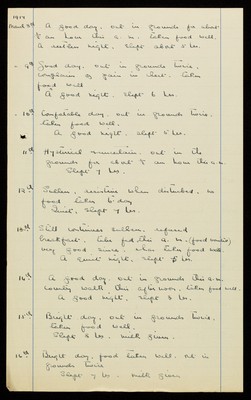 A good day, out in grounds for about
¾ an hour this a.m. taken food well.
A restless night. slept about 5 hrs.
" 9th Good day, out in grounds twice,
complains of pain in chest. taken
food well
A good night. slept 6 hrs.
" 10th Comfortable day. out in grounds twice.
taken food well.
A good night, slept hrs.
11th Hysterical out in the
grounds for about ¾ an hour this a.m.
Slept 7 hrs.
12th Sullen, when disturbed, no
food taken to-day
Quiet. Slept 7 hrs.
13th Still continues sullen, refused
breakfast. tube fed this a.m.
very good since, when taken food well
A quiet night, slept hrs.
14th A good day out in grounds this a.m.
country walk this afternoon. taken food well
A good night, slept 8 hrs.
15th Bright day, out in grounds twice.
taken food well.
Slept 8 hrs. milk given.
16th Bright day, food taken well. out in
grounds twice
Slept 7 hrs. milk given